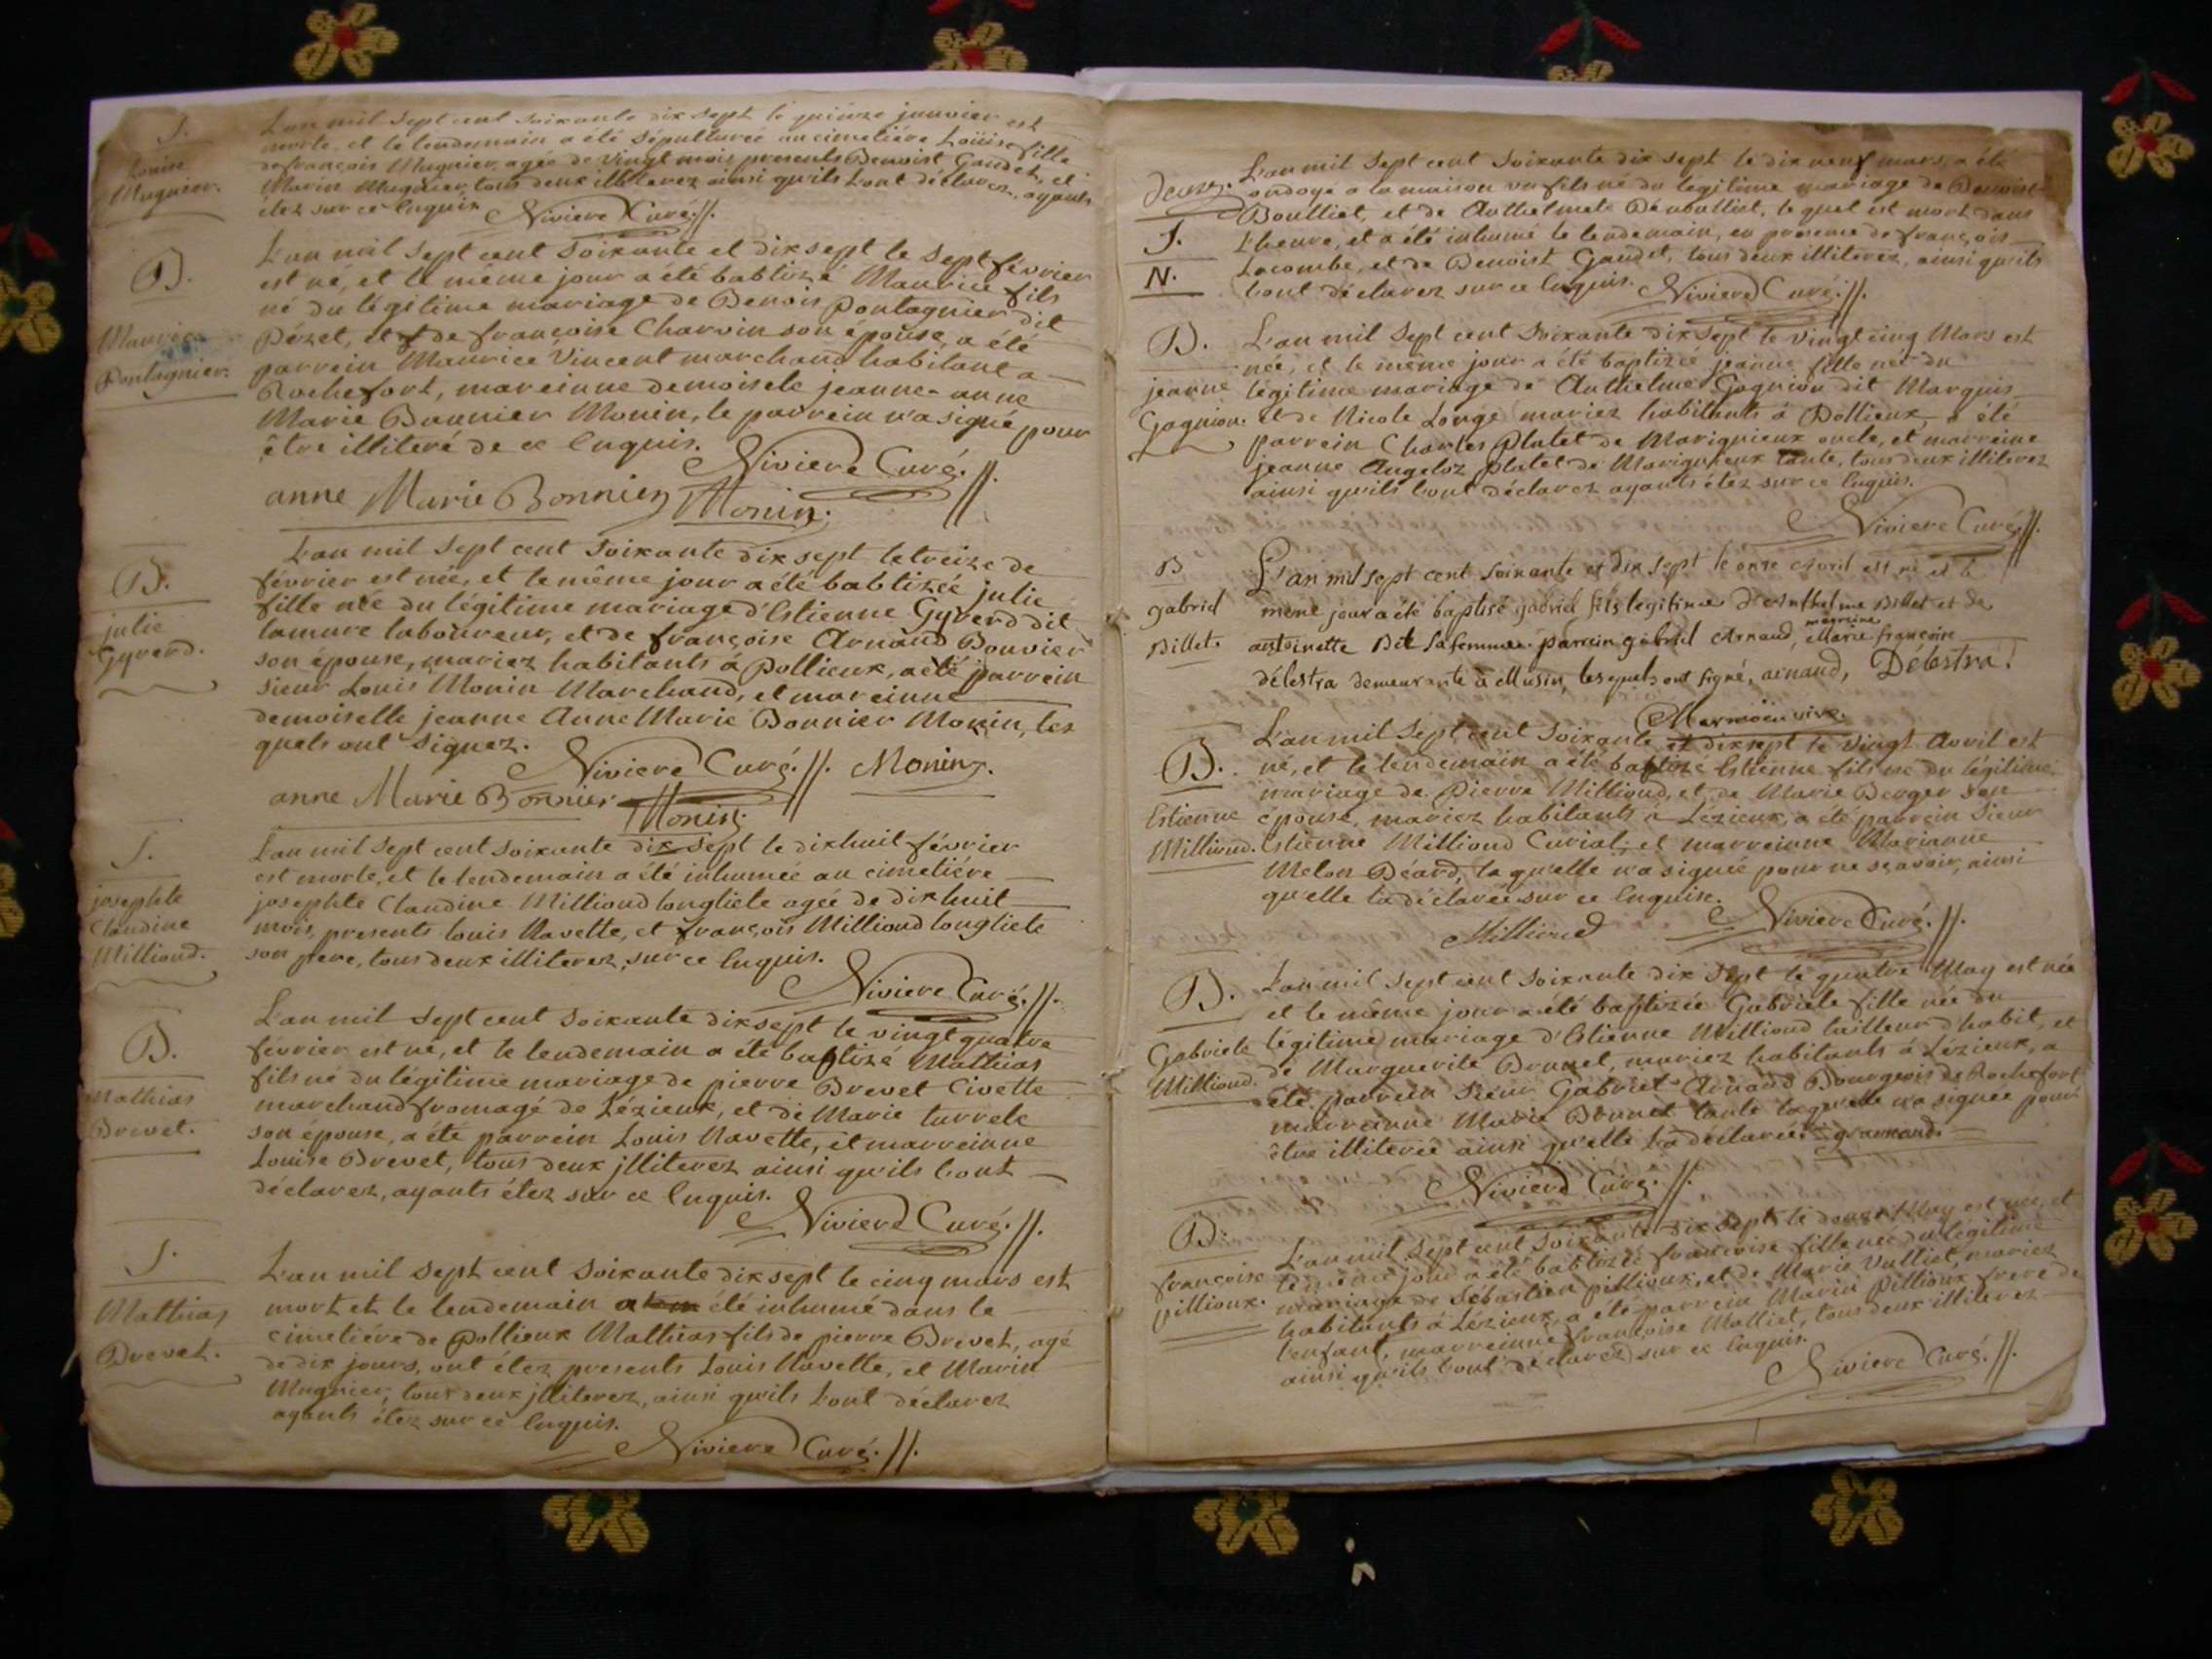 S.
Louise
Mugnier.
L'an mil sept cent soixante dix sept le quinze janvier est
morte, et le lendemain a été sépulturée au cimetière Loüise fille
de françois Mugnier, agée de vingt mois, presents Benoist Gaudet, et
Marin Mugnier, tous deux illiterez ainsi qu'ils l'ont déclarez, ayants
étez sur ce Enquis. Niviere Curé.//.
B.
Maurice
Pontagnier.
L'an mil sept cent soixante et dix sept le sept février
est né, et le même jour a été babtizé Maurice fils
né du légitime mariage de Benois Pontagnier dit
Pézet, et de françoise Charvin son épouse, a été
parrein Maurice Vincent marchand habitant a
Rochefort, mareinne demoisele jeanne-anne
Marie Bonnier Monin, le parrein n'a signé pour
être illiteré de ce Enquis. Niviere Curé.//.
anne Marie Bonnier Monin.
B.
julie
Gyrerd.
L'an mil sept cent soixante dix sept le treize de
février est née, et le même jour a été babtizée julie
fille née du légitime mariage d'Estienne Gyrerd dit
lamure laboureur, et de françoise Arnaud Bouvier
son épouse, mariez habitants á Pollieux, a été parrein
sieur Louis Monin Marchand, et mareinne
demoiselle jeanne Anne Marie Bonnier Monin, les
quels ont signez. Niviere Curé.//. Monin.
anne Marie Bonnier Monin.
S.
josephte
Claudine
Milliond.
L'an mil sept cent soixante dix sept le dixhuit février
est morte, et le lendemain a été inhumée au cimetiére
josephte Claudine Milliond longliete agée de dix huit
mois, presents louis Navette, et françois Milliond longliete
son pere, tous deux illiterez, sur ce Enquis.
Niviere Curé.//.
B.
Mathias
Brevet.
L'an mil sept cent soixante dix sept le vingt quatre
février est né, et le lendemain a été baptizé Mathias
fils né du légitime mariage de pierre Brevet Civette
marchand fromagé de Lézieux, et de Marie turrele
son épouse, a été parrein Louis Navette, et marreinne
Louise Brevet, tous deux jlliterez ainsi qu'ils l'ont
déclarez, ayants étez sur ce Enquis.
Niviere Curé.//.
S.
Mathias
Brevet.
L'an mil sept cent soixante dix sept le cinq mars est
mort et le lendemain a été inhumé dans le
cimetiére de Pollieux Mathias fils de pierre Brevet, agé
de dix jours, ont étez presents Louis Navette, et Marin
Mugnier, tous deux jlliterez, ainsi qu'ils l'ont déclarez
ayants étez sur ce Enquis.
Niviere Curé.//.
deuxe.
S.
N.
L'an mil sept cent soixante dix sept le dix neuf mars, a été
ondoyé a la maison un fils né du légitime mariage de Benoist
Boulliet, et de Anthelmete, le quel est mort dans
l'heure, et a été inhumé le lendemain, en presence de françois
Lacombe, et de Benoist Gaudet, tous deux illiterez, ainsi qu'ils
l'ont déclarez sur ce Enquis. Niviere Curé.//.
B.
jeanne
Gognion.
L'an mil sept cent soixante dix sept le vingt cinq Mars est
née, et le même jour a été baptizée jeanne fille née du
légitime mariage de Anthelme Gognion dit Marquis
et de Nicole Longe mariez habitants á Pollieux, a été
parrein Charles Platet de Marignieux oncle, et marreine
jeanne Angeloz platet de Marignieux tante, tous deux illiterez
ainsi qu'ils l'ont déclarez ayants étez sur ce Enquis.
Niviere Curé.//.
B
gabriel
Billet.
L'an mil sept cent soixante et dix sept le onze avril est né et le
même jour a été baptisé gabriel fils legitime d'Anthelme Billet et de
antoinette Bit sa femme. parrein gabriel Arnaud, marreine Marie françoise
délestra demeurante à Musin, lesquels ont signé, arnaud, Délestra.
B.
Estienne
Milliond.
L'an mil sept cent soixante et dix sept le vingt Avril est
né, et le lendemain a été baptizé Estienne fils né du légitime
mariage de Pierre Milliond, et de Marie Berger son
épouse, mariez habitants á Lézieux, a été parrein Sieur
Estienne Milliond Curial, et marreinne Marianne
Melon Béard, la qu'elle n'a signée pour ne sçavoir, ainsi
qu'elle l'a déclarée sur ce Enquise.
Milliond Niviere Curé.//.
B.
Gabriele
Milliond.
L'an mil sept cent soixante dix sept le quatre May est née
et le même jour a été baptizée Gabriele fille née du
légitime mariage d'Estienne Milliond tailleur d'habit, et
de Marguerite Brunet, mariez habitants á Lézieux, a
été parrein Sieur Gabriel Arnaud Bourgeois de Rochefort
marreinne Marie Brunet tante la quelle n'a signée pour
être illiterée ainsi qu'elle l'a déclarée. g. arnaud.
Niviere Curé.//.
B.
françoise
pillioux.
L'an mil sept cent soixante dix sept le douze May est née, et
le même jour a été babtizée françoise fille née du légitime
mariage de Sébastien pillioux, et de Marie Vulliet, mariez
habitants á Lézieux, a été parrein Marin Pillioux frere de
l'enfant, marreinne françoise Molliet, tous deux illiterez
ainsi qu'ils l'ont déclarez sur ce Enquis.
Niviere Curé.//.